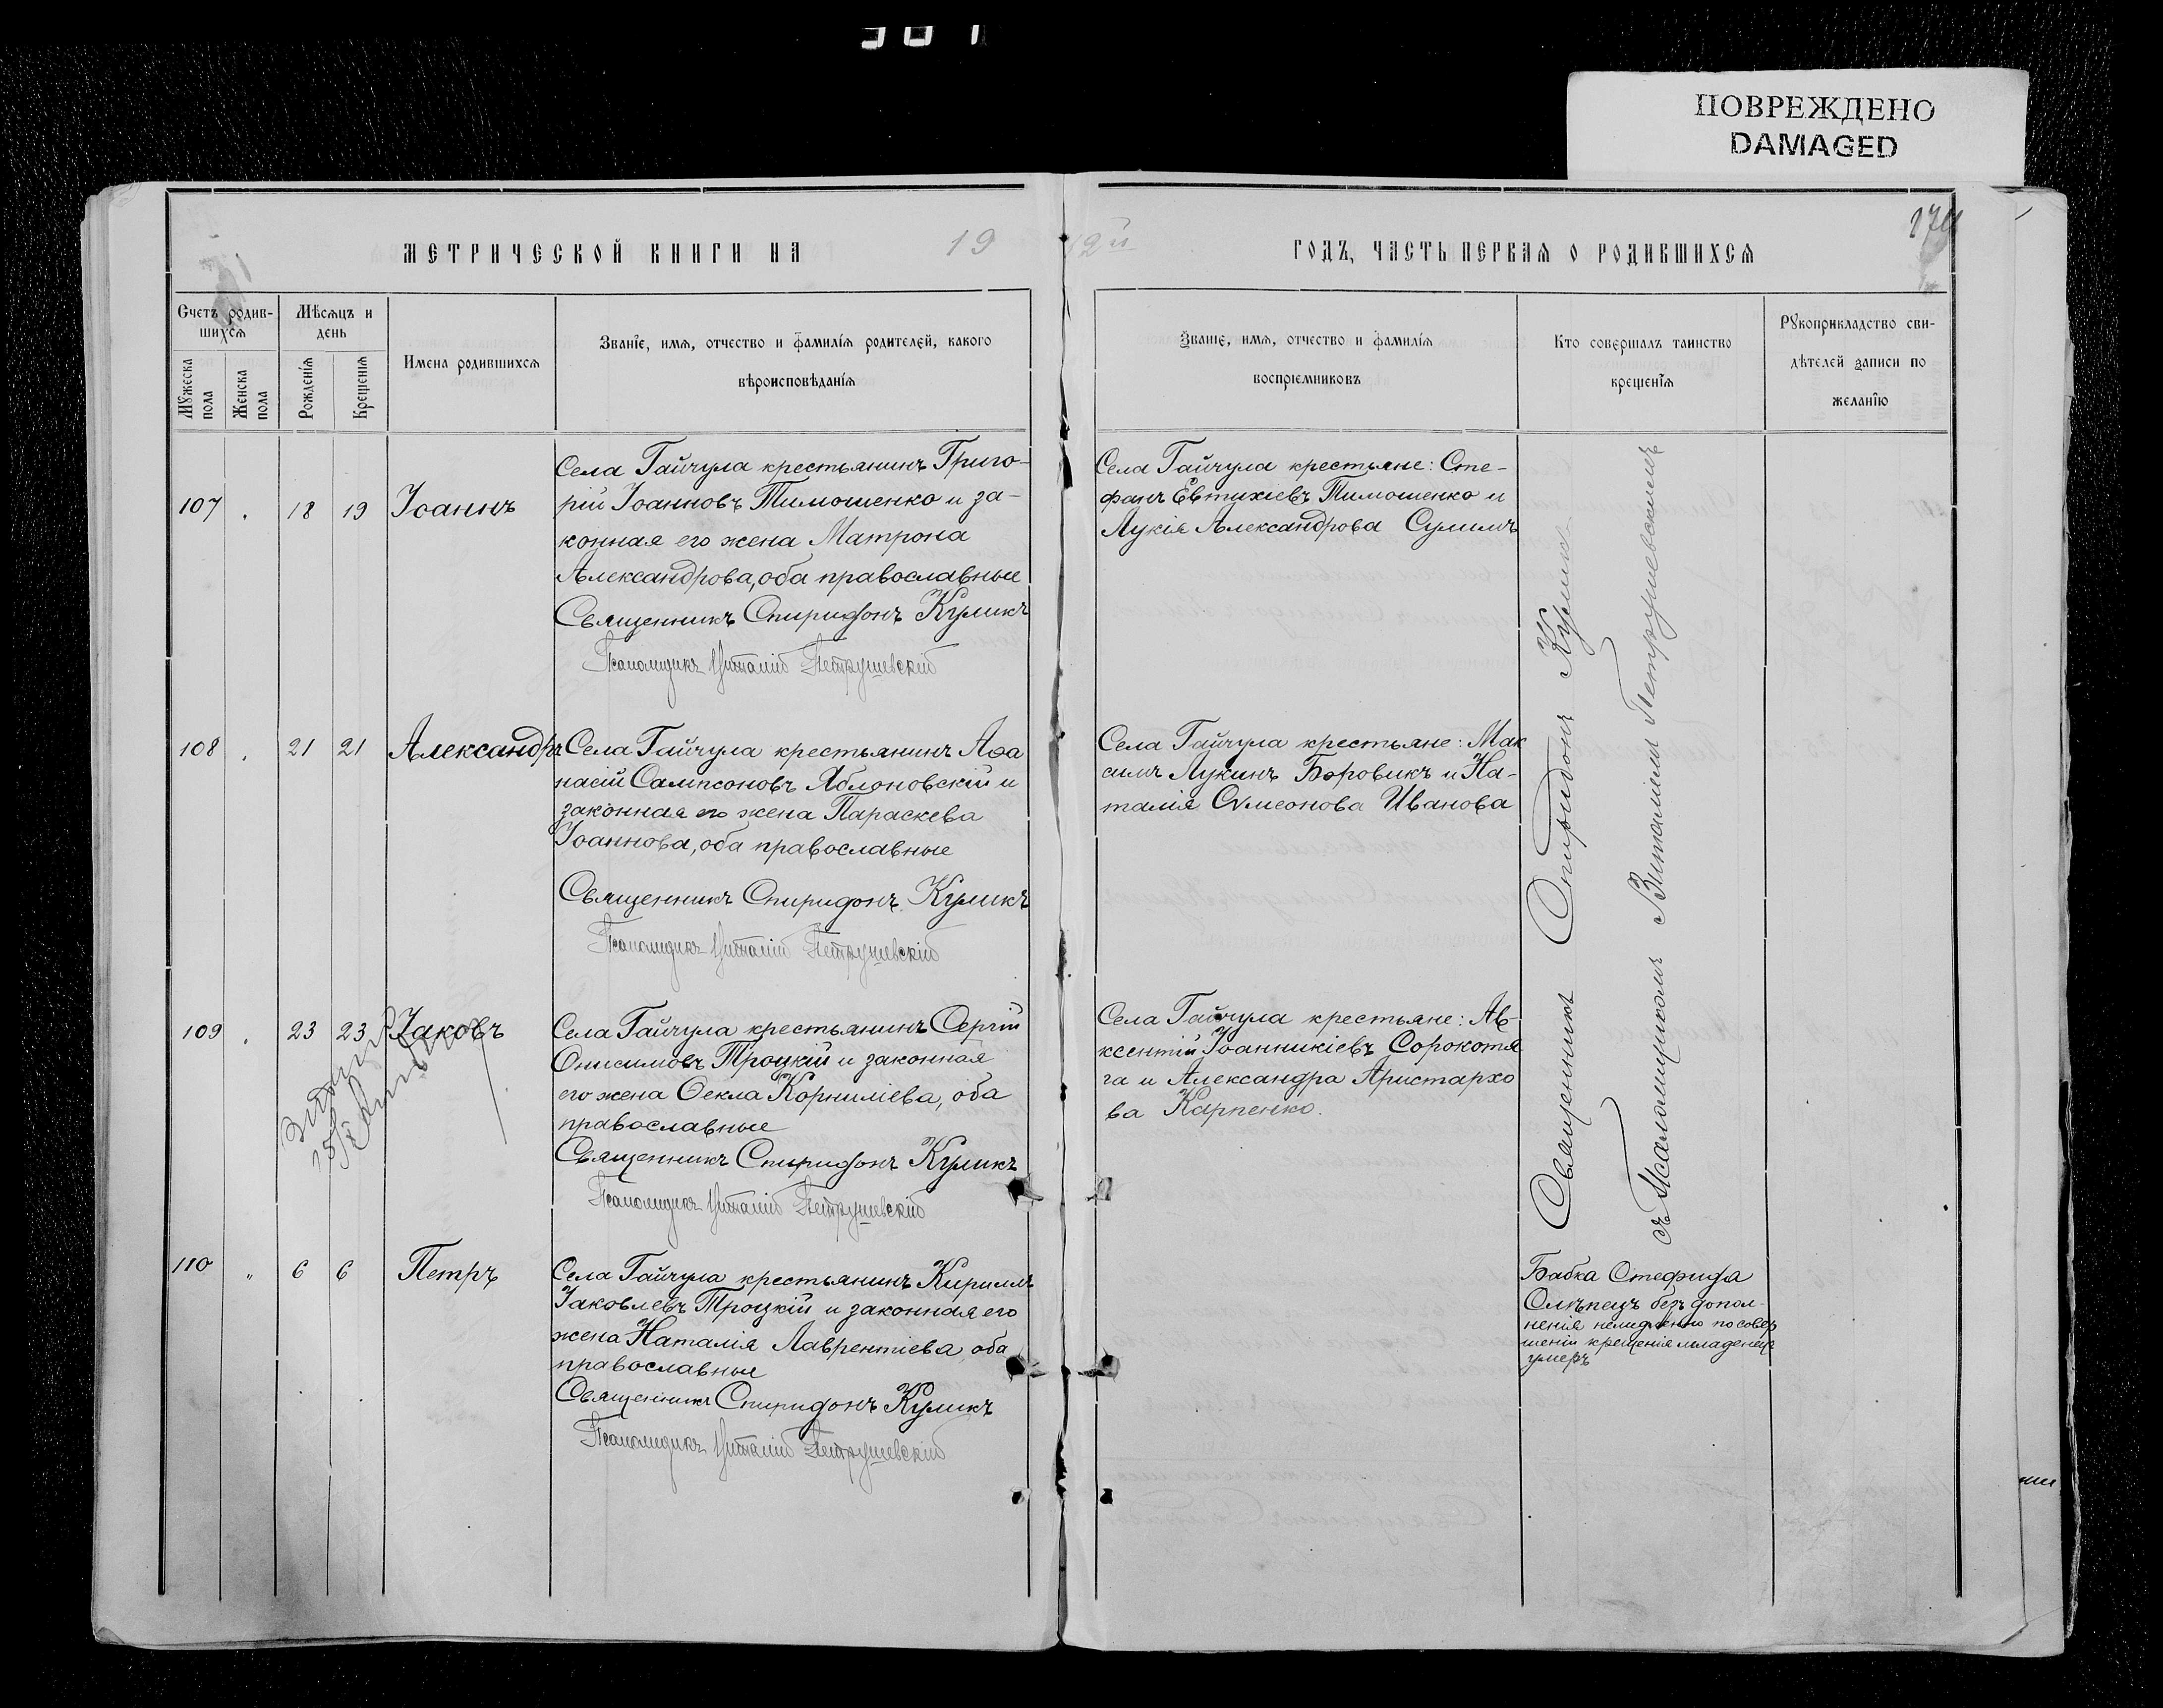 ПОВРЕЖДЕНО
DAMAGED
МЕТРИЧЕСКОЙ КНИГИ НА 19
12й ГОДЪ, ЧАСТЬ ПЕРВАЯ О РОДИВШИХСЯ
Счетъ родив-
шихся
Мужеска пола
Женска пола
Мѣсяцъ и
день
Рожденія
Крещенія
Имена родившихся
Званіе, имя, отчество и фамилія родителей, какого
вѣроисповѣданія
Званіе, имя, отчество и фамилія
воспріемниковъ
Кто совершалъ таинство
крещенія
Рукоприкладство сви-
дѣтелей записи по
желанію
107 18 19 Іоаннъ
Села Гайчула крестьянинъ Григо-
рій Іоанновъ Тимошенко и за-
конная его жена Матрона
Александрова, оба православные
Священникъ Спиридонъ Куликъ
Псаломщикъ Виталій Петрушевскій
Села Гайчула крестьяне: Сте-
фанъ Евтихіевъ Тимошенко и
Лукія Александрова Сулимъ
108 21 21 Александръ
Села Гайчула крестьянинъ Аѳа
насій Сампсоновъ Яблоновскій и
законная его жена Параскева
Іоаннова, оба православные
Священникъ Спиридонъ Куликъ
Псаломщикъ Виталій Петрушевскій
Села Гайчула крестьяне: Мак
симъ Лукинъ Боровикъ и На-
талія Сѵмеонова Иванова
109 23 23 Іаковъ
Села Гайчула крестьянинъ Сергій
Онисимовъ Троцкій и законная
его жена Ѳекла Корниліева, оба
православные
Священникъ Спиридонъ Куликъ
Псаломщикъ Виталій Петрушевскій
Села Гайчула крестьяне: Ав-
ксентій Іоанникіевъ Сорокотя
га и Александра Аристархо
ва Карпенко.
Священникъ Спиридонъ Куликъ
съ Псаломщикомъ Виталіемъ Петрушевскимъ
110 " 6 6 Петръ
Села Гайчула крестьянинъ Кириллъ
Іаковлевъ Троцкій и законная его
жена Наталія Лаврентіева, оба
православные
Священникъ Спиридонъ Куликъ
Псаломщикъ Виталій Петрушевскій
Бабка Стефида
безъ допол-
ненія по совер
шеніи крещенія младенецъ
умеръ